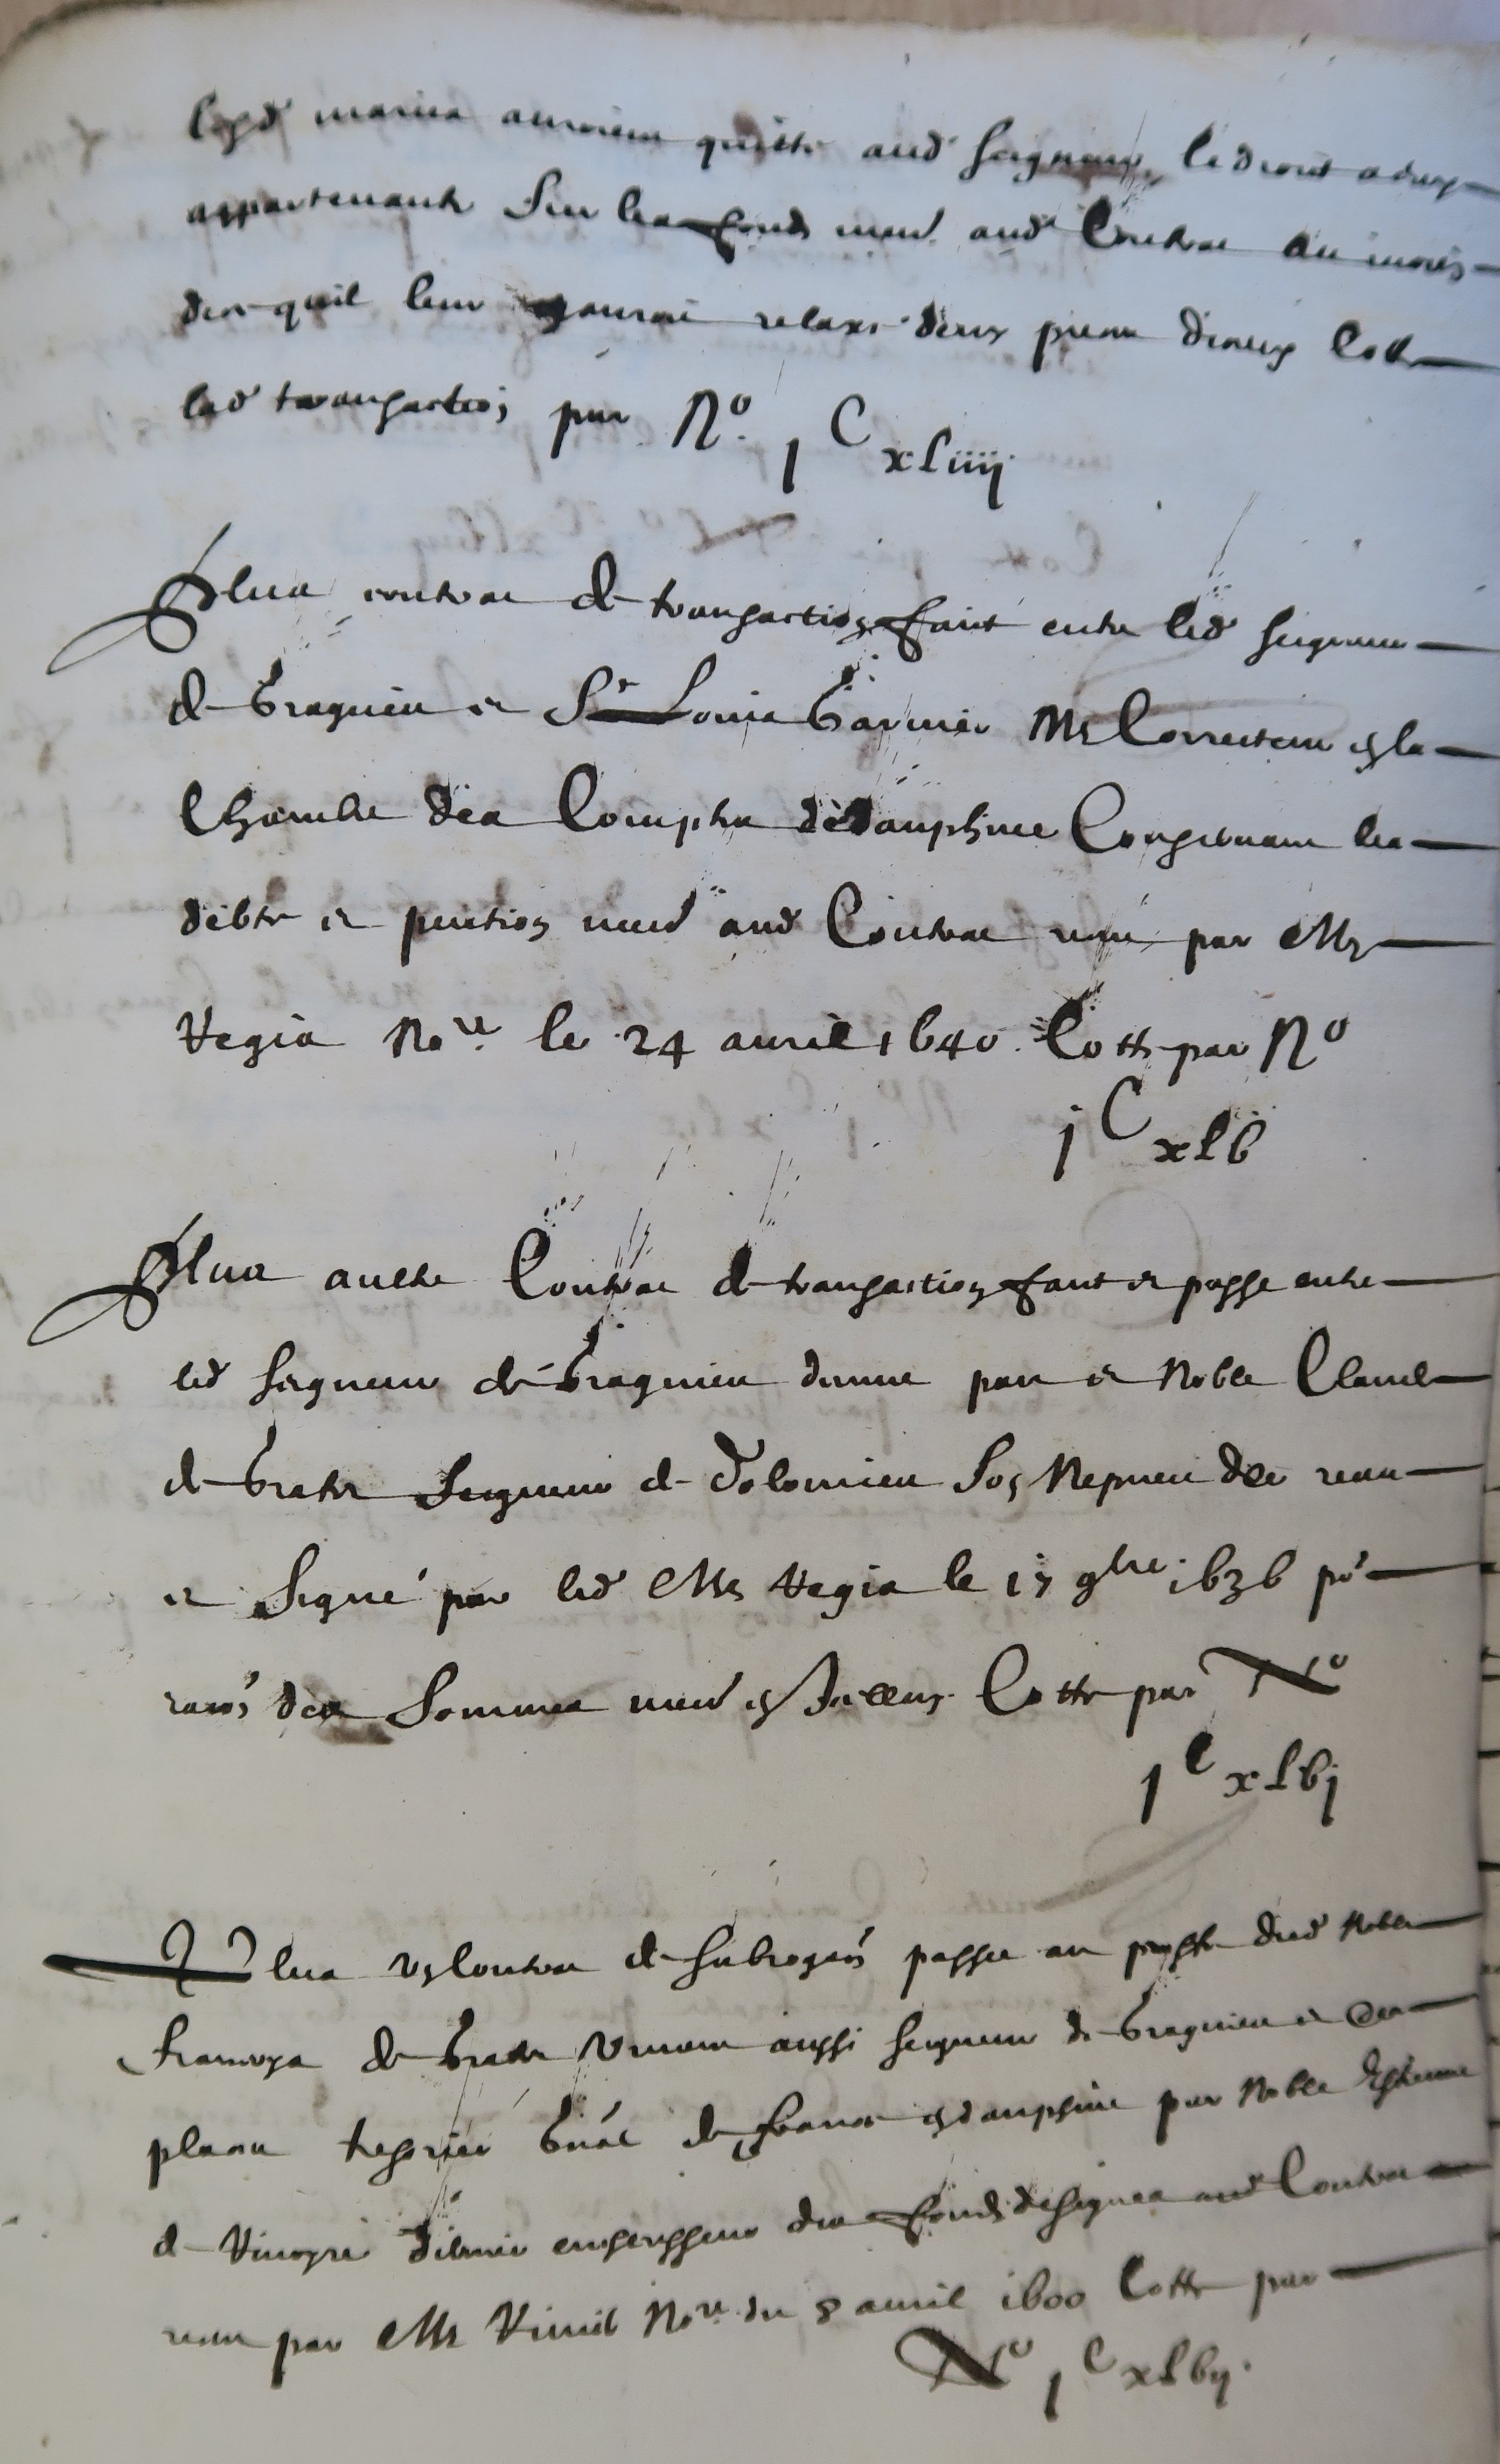 lesd maries auroient quitte aud seigneur le droict a eux
appartenants sur les fonds mend aud contrac au moien
de quil leur auroit relaxe deux
lad transaction par N° j C xLiiij
Plus contrac de transaction faict entre led seigneur
de Bragnieu et Sr Louis Garnier Me Correcteur en la
Chambre des Comptes de dauphine Consernant les
debte et pention mend aud Contrac receu par Me
Regis Nore le 24 auril 1640 Cotte par N°
j C xLb
Plus aultre Contrac de transaction faict et passe entre
led seigneur de Bragnieu dune part et Noble Claude
de Gratet Seigneur de Dolomieu son Nepueu receu
et signé par led Me Regis le 15 9bre 1636 po
raion des sommes mend en Icelluy Cotte par N°
j C xLbj
Plus vn Contrac de subrogaon passee au proffit dud Noble
francoys de Gratet viuant aussi seigneur de Bragnieu et
tresorier gnal de france en dauphine par Noble Estienne
de fonds designes aud Contrac
receu par Me Nore du 8 auril 1600 Cotte par
N° j C xLbij